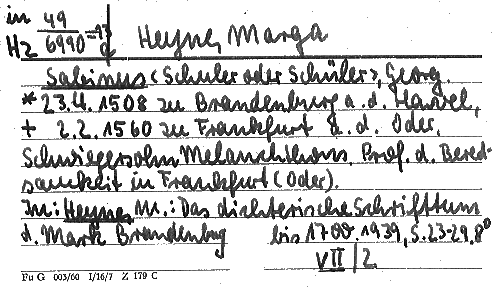 in 49
Hz 6990=17
a
Heyne, Marga
Sabinus (Schuler oder Schüler), Georg.
* 23.4.1508 zu Brandenburg a. d. Havel,
+ 2.2.1560 zu Frankfurt a. d. Oder.
Schwiegersohn Melanchthons. Prof. d. Bered-
samkeit in Frankfurt (Oder).
In: Heyne, M.: Das dichterische Schrifttum
d. Mark Brandenburg bis 1700. 1939, S. 23-29. 8°
VII/2
Fu G 003/60 I/16/7 Z 179 C